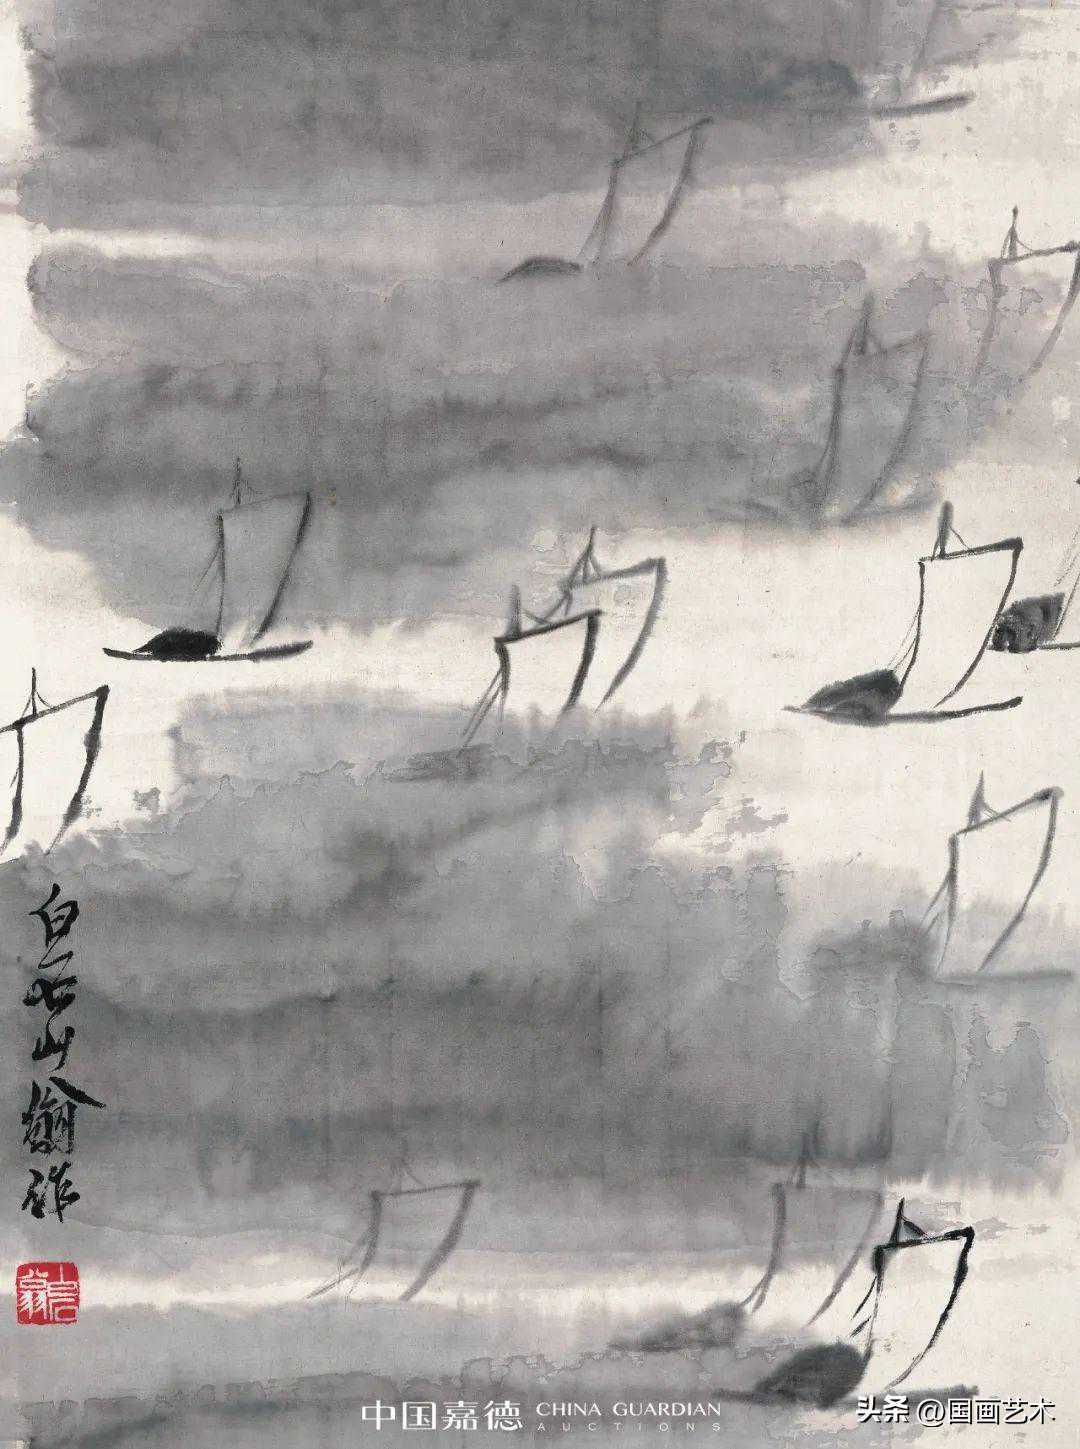 白石山翁作
白石翁
中国嘉德 CHINA GUARDIAN
AUCTIONS
头条 @国画艺术